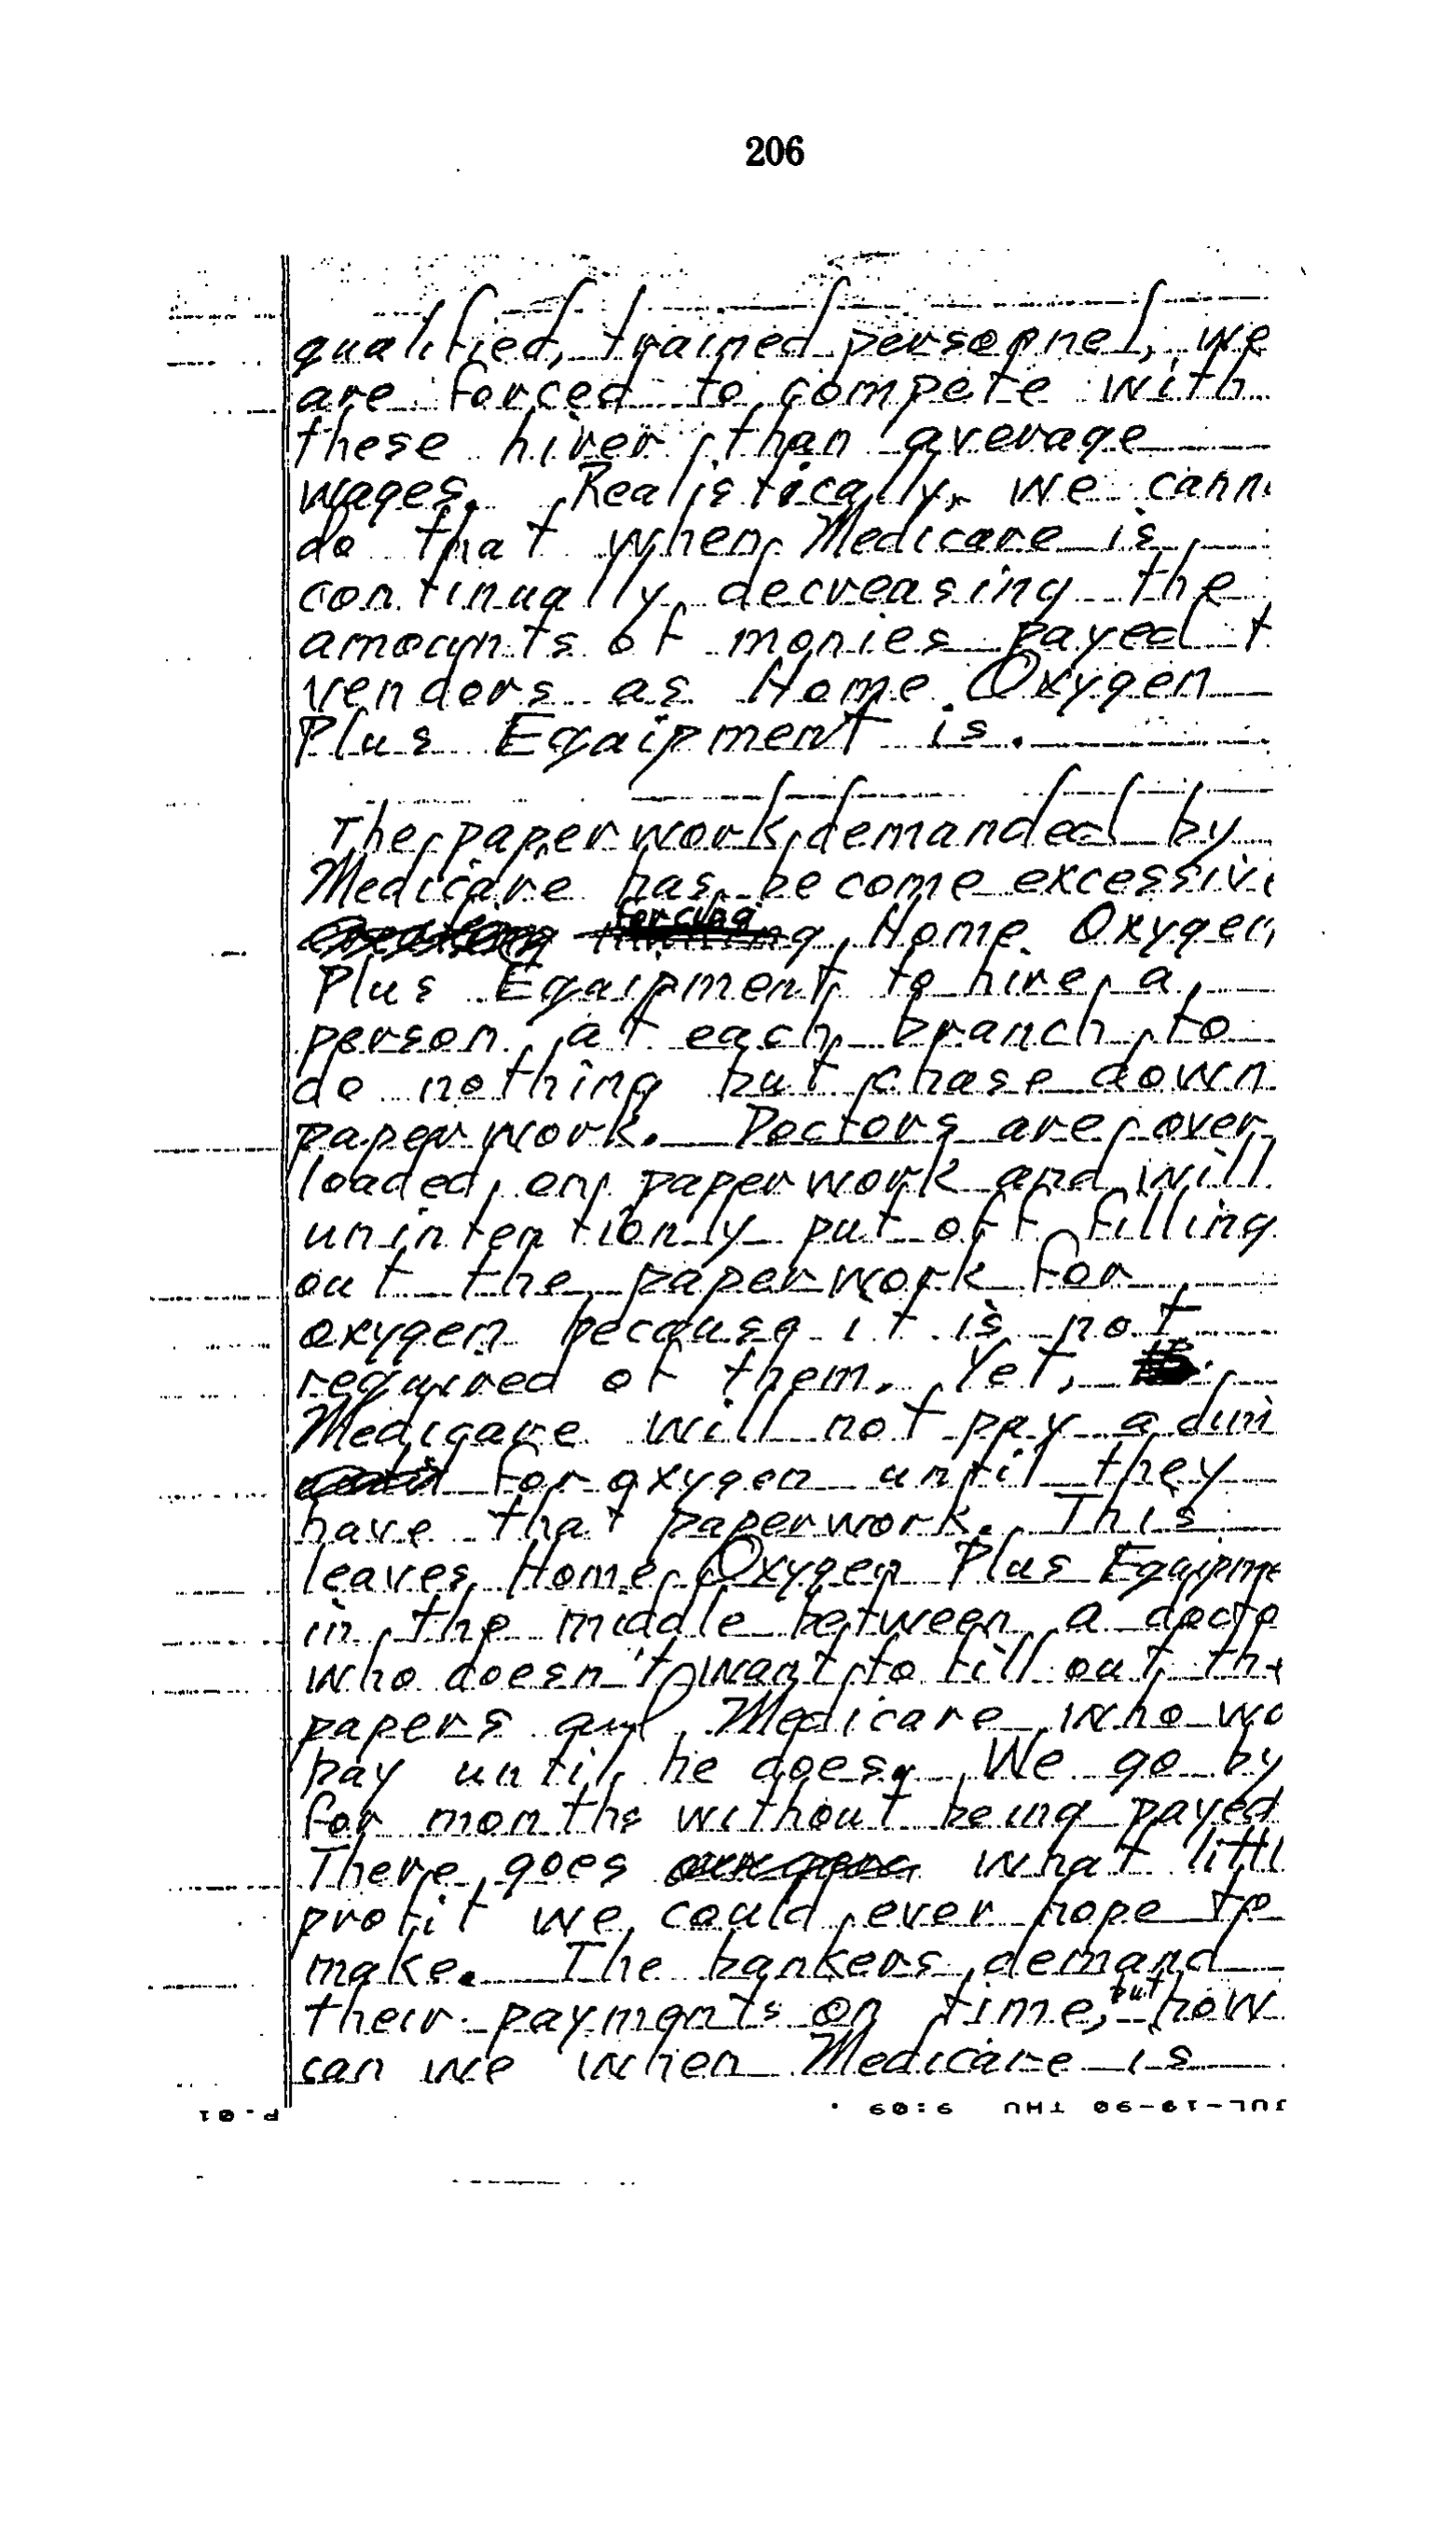 206
qualified, trained personnel, we
are forced to compete with
these hiher than average
wages. Realistically, we cann
do that when Medicare is
continually decreasing the
amounts of monies payed t
venders as Home Oxygen
Plus Equipment is.
The paperwork demanded by
Medicare has become excessive
forcing Home Oxygen
Plus Equipment to hire a
person at each branch to
do nothing but chase down
paperwork. Doctors are over
loaded on paperwork and will
unintentionly put off filling
out the paperwork for
oxygen because it is not
required of them. Yet,
Medicare will not pay a dim
for oxygen until they
have that paperwork. This
leaves Home Oxygen Plus Equipme
in the middle between a docto
who doesn't want to fill out the
papers and Medicare who wo
pay until he does. We go by
for months without being payed
There goes what littl
profit we could ever hope to
make. The bankers demand
their payments on time, but how
can we when Medicare is
JUL-19-90 THU 9:09 P.01